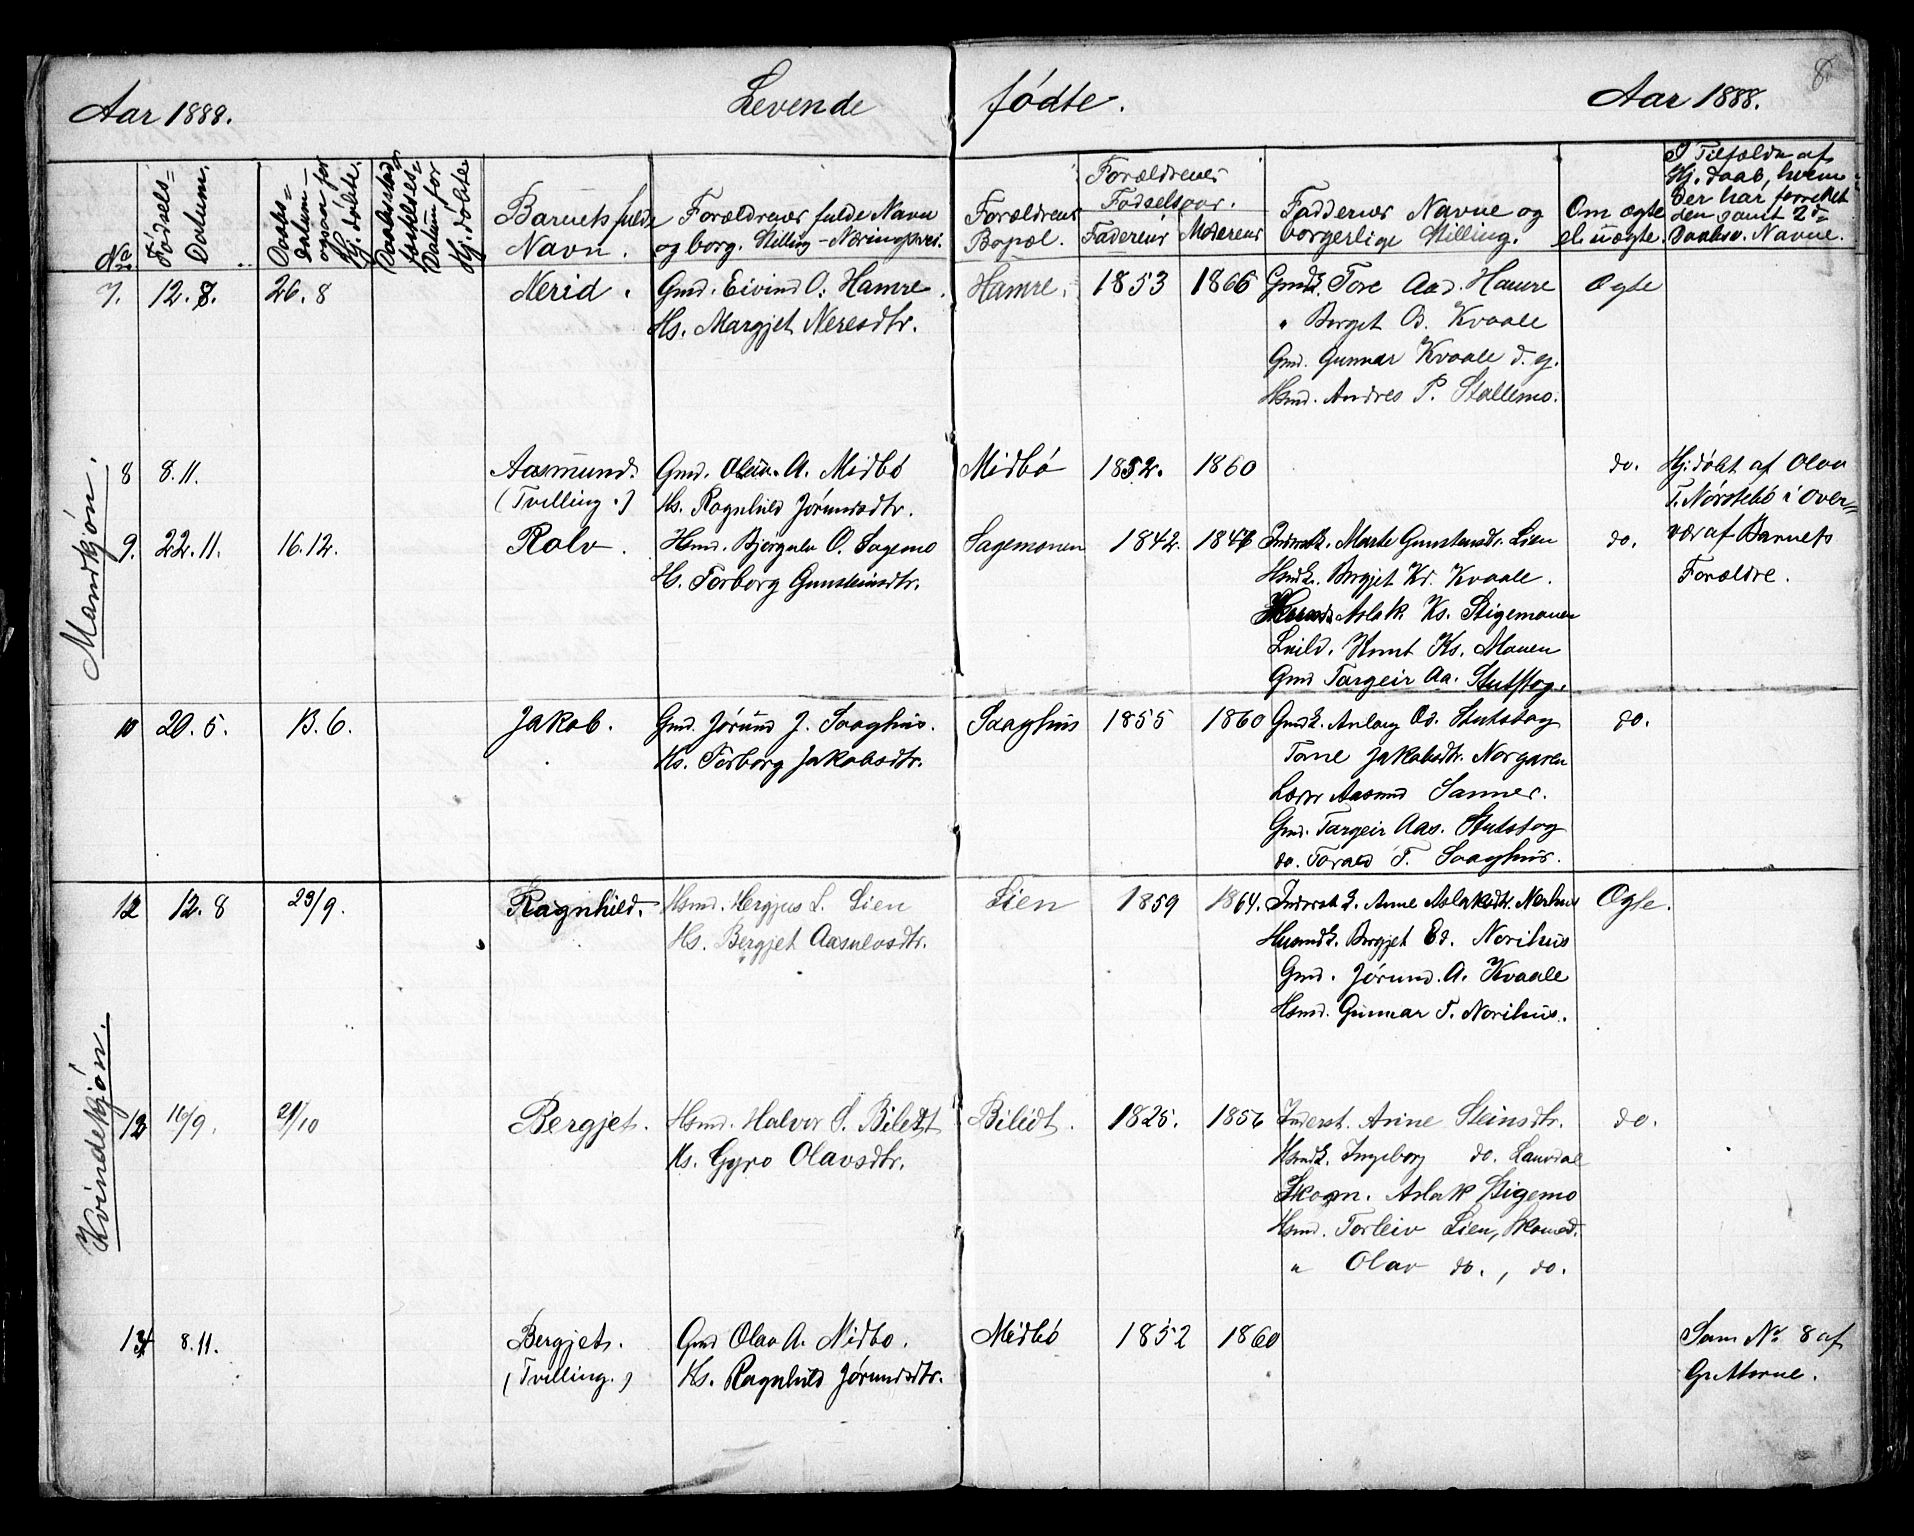 8
Aar 1888. Levende fødte. Aar 1888.
No
Fødsels=
Datum.
Daabs=
datum
ogsaa for
Hj.døbte.
Datum for
Hj.døbte
Barnets fulde
Navn.
Forældrenes fulde Navn
og borg. Stilling - Næringsvei.
Forældrenes
Bopæl.
Forældrenes
Fødselsaar.
Faderens Moderens
Faddernes Navne og
borgerlige Stilling.
Om ægte
el. uægte.
I Tilfælde af
Hj. daab, hvem
der har forrettet
den samt 2de
Daabsv. Navne.
Mandkjøn.
7. 12.8. 26.8 Nerid. Gmd. Eivind O. Hamre. Hamre. 1853 1866 Gmdk. Tore Aad. Hamre Ægte
Hs. Margjet Neresdtr. " Berget O. Kvaale
Gmd. Gunnar Kvaale d. y.
Hsmd. Andres P. Stallemo.
8 8.11. Aasmund. Gmd. Olav A. Midbø Midbø 1852. 1860 do. Hj.døbt af Olav
(Tvilling.) Hs. Ragnhild Jørundsdtr. T. Nørstebø i Over=
9. 22.11. 16.12. Rolv. Hsmd. Bjørgulv O. Sagemo Sagemonen 1842. 1847 Inderstk. Marte Gunsteinsdr. Lien do. vær af Barnets
Hs. Torborg Gunsteinsdtr. Hsmdk. Bergjet Kd. Kvaale. Forældre.
Aslak Ks. Stigemonen
Knut Ks. Monen
Gmd Targeir Aa. Stutstog.
10 20.5. 13.6. Jakob. Gmd. Jørund J. Saaghus. Saaghus 1855 1860 Gmdk. Anlaug Od. Stutstog do.
Hs. Torborg Jakobsdtr. Tone Jakobsdtr. Norgaren
Lærer Aasmund Sanner.
Gmd. Targeir Aas. Stutstog
do. Torald T. Saaghus.
Kvindekjøn.
12 12.8 23/9. Ragnhild. Hsmd. Hergjus L. Lien Lien 1859 1864. Inderst k. Anne Aslaksdtr. Nerhus Ægte.
Hs. Bergjet Aasulvsdtr. Husmdk. Bergjet Ed. Norihus
Gmd. Jørund A. Kvaale
Hsmd. Gunnar T. Norihus.
16/9. 21/10 Bergjet. Hsmd. Halvor S. Bilett Biledt. 1825. 1856 Inderst. Anne Steinsdtr. do.
Hs. Gyro Olavsdtr. Hsmdk. Ingeborg do. Laurdal
Skogm. Aslak Stigemo
Hsmd. Torleiv Lien, Skomed.
" Olav do., do.
8.11. Bergjet. Gmd Olav A. Midbø. Midbø 1852 1860 Sam No 8 af
(Tvilling.) Hs. Ragnhild Jørundsdtr. Guttorne.